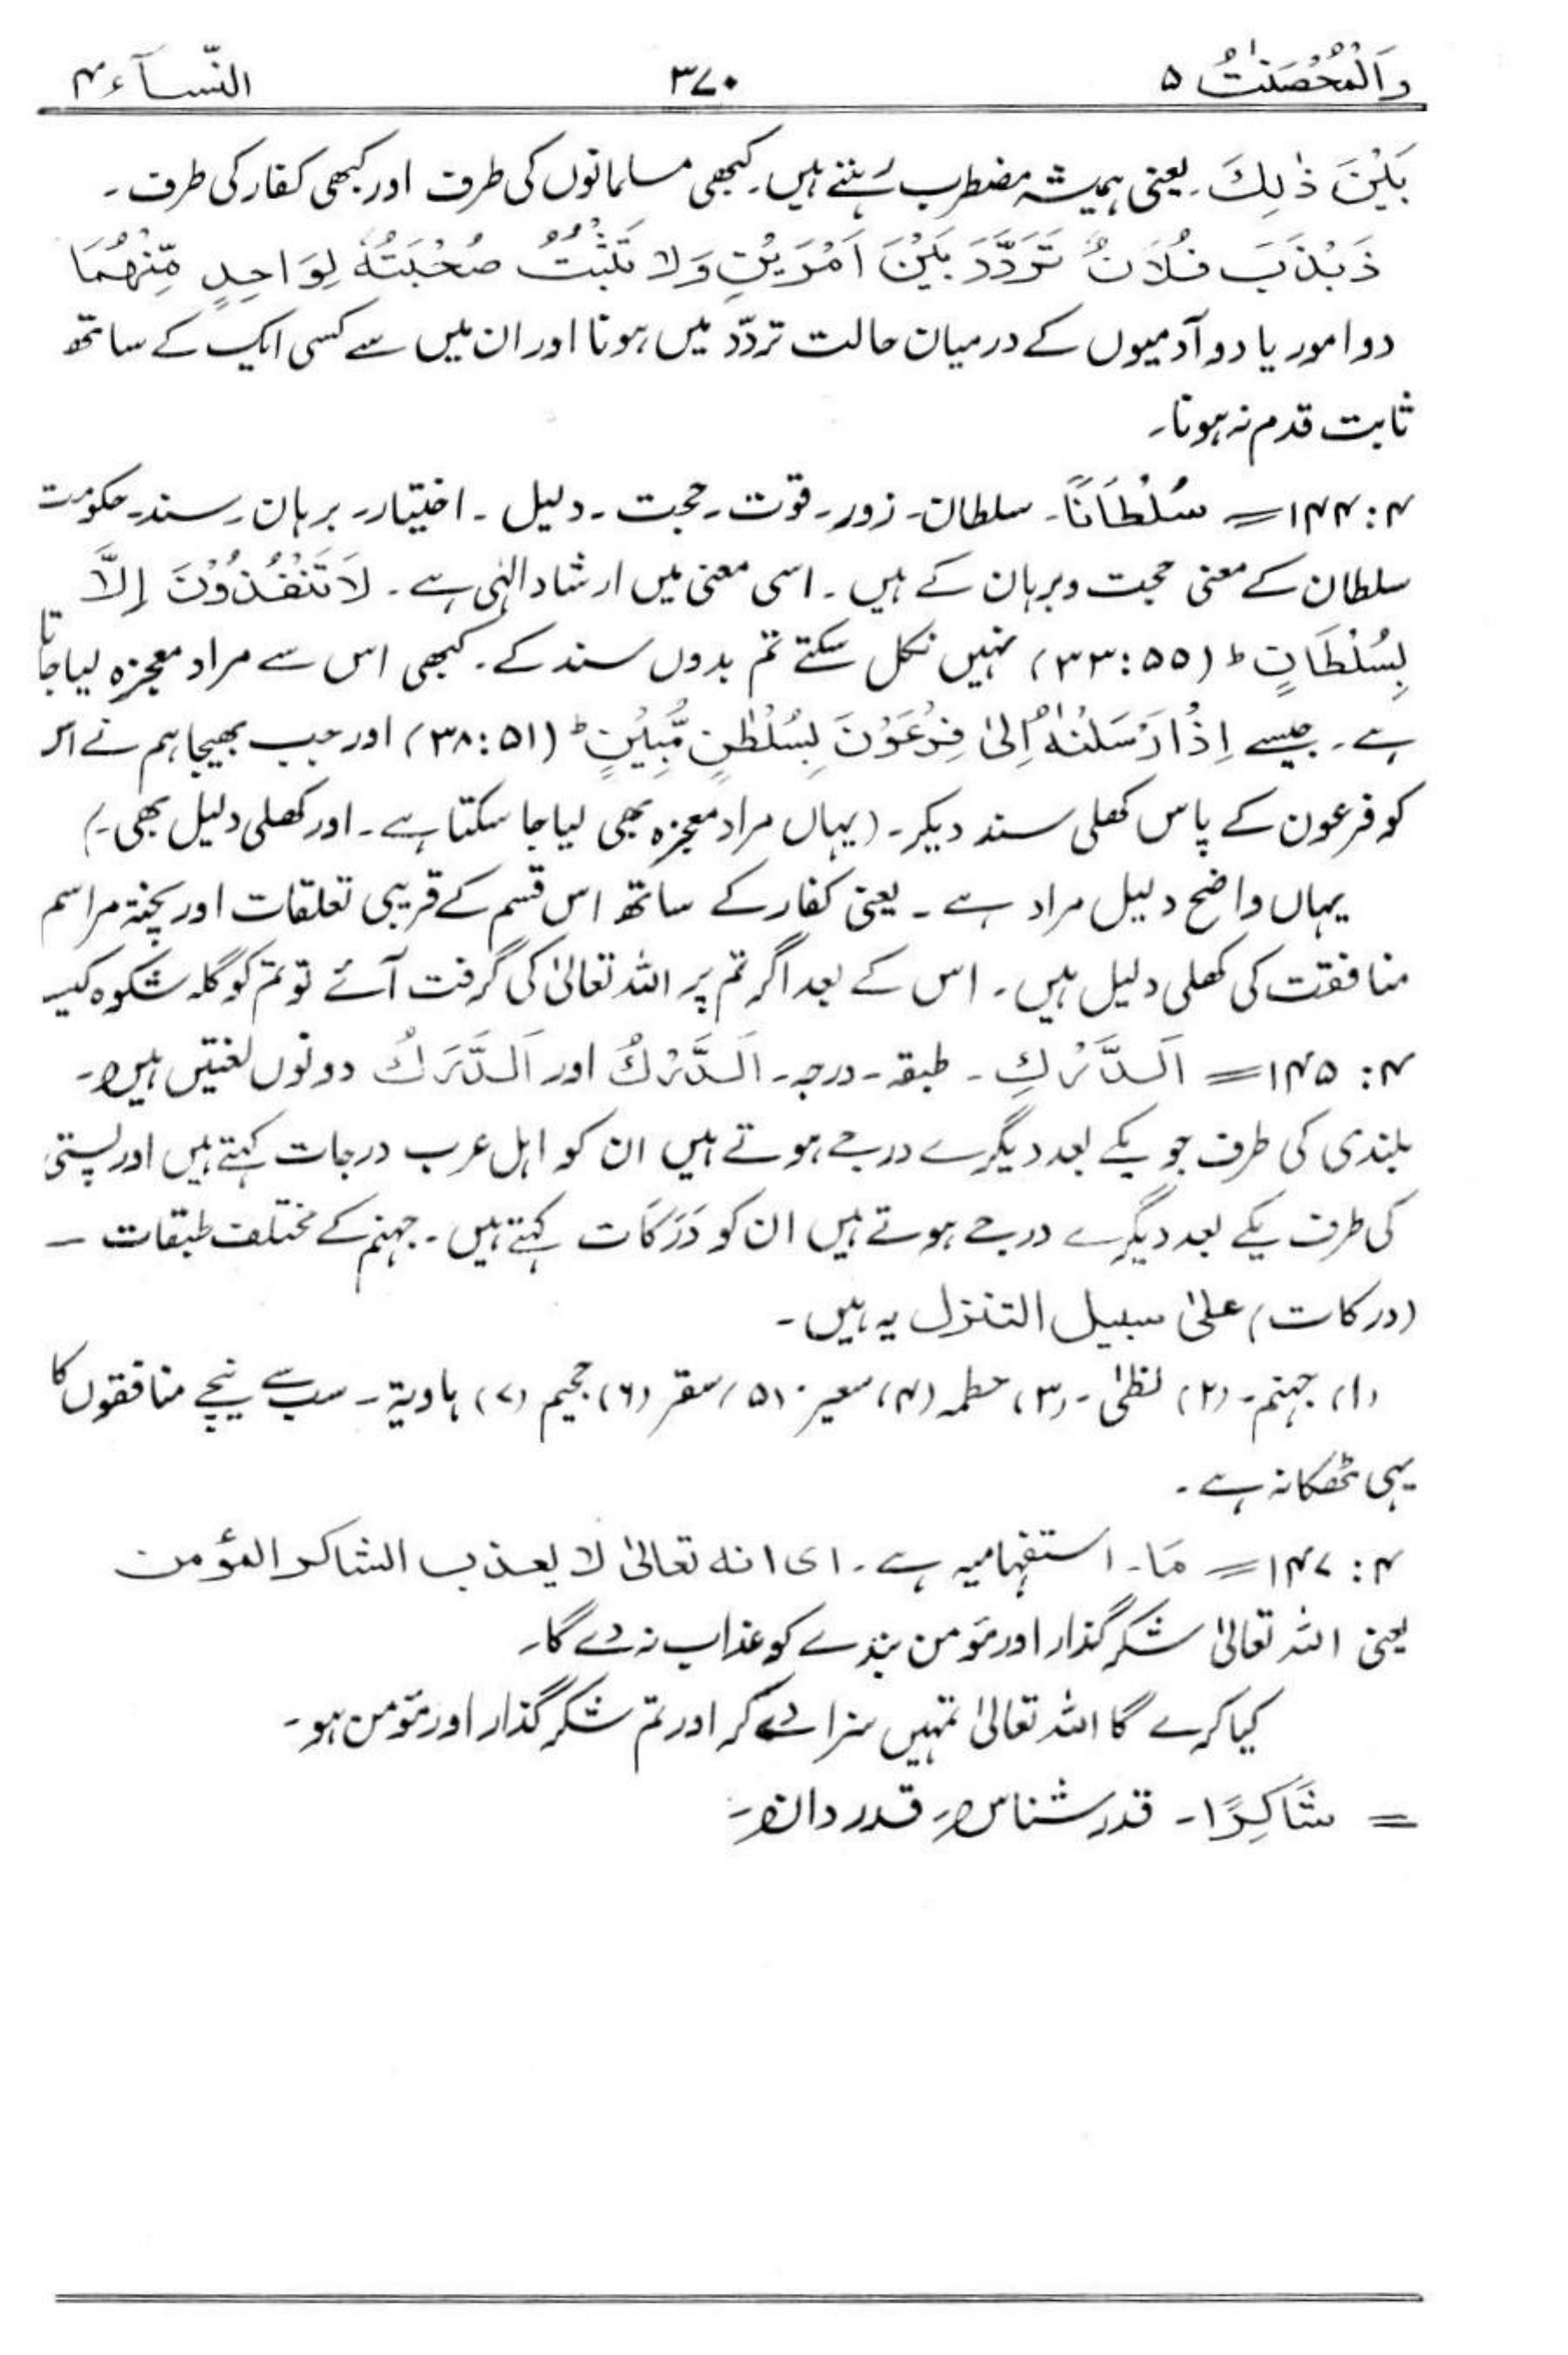 وَالْمُحْصَنٰتُ ۵ ۳۷۰ النِّسَآء ۴
بَيْنَ ذٰلِكَ۔ یعنی ہمیشہ مضطرب رہتے ہیں۔ کبھی مسلمانوں کی طرف اور کبھی کفار کی طرف۔
ذَبْذَبَ فُلَانٌ تَرَدَّدَ بَيْنَ اَمْرَيْنِ وَلَا تَثْبُتُ صُحْبَتُهٗ لِوَاحِدٍ مِّنْهُمَا
دو امور یا دو آدمیوں کے درمیان حالت تردّد میں ہونا اور ان میں سے کسی ایک کے ساتھ
ثابت قدم نہ ہونا۔
۴:۱۴۴ = سُلْطَانًا۔ سلطان۔ زور۔ قوت۔ حجت۔ دلیل۔ اختیار۔ برہان۔ سند۔ حکومت
سلطان کے معنی حجت و برہان کے ہیں۔ اسی معنی میں ارشاد الٰہی ہے۔ لَا تَنْفُذُوْنَ اِلَّا
بِسُلْطَانٍ ط (۵۵:۳۳) نہیں نکل سکتے تم بدوں سند کے۔ کبھی اس سے مراد معجزہ لیا جاتا
ہے۔ جیسے اِذْ اَرْسَلْنٰهُ اِلٰى فِرْعَوْنَ بِسُلْطٰنٍ مُّبِيْنٍ ط (۵۱:۳۸) اور جب بھیجا ہم نے اس
کو فرعون کے پاس کھلی سند دیکر۔ (یہاں مراد معجزہ بھی لیا جا سکتا ہے۔ اور کھلی دلیل بھی۔)
یہاں واضح دلیل مراد ہے۔ یعنی کفار کے ساتھ اس قسم کے قریبی تعلقات اور پختہ مراسم
منافقت کی کھلی دلیل ہیں۔ اس کے بعد اگر تم پر اللہ تعالیٰ کی گرفت آئے تو تم کو گلہ شکوہ کیسا
۴:۱۴۵ = اَلدَّرْكِ۔ طبقہ۔ درجہ۔ اَلدَّرْكُ اور اَلدَّرَكُ دونوں لغتیں ہیں۔
بلندی کی طرف جو یکے بعد دیگرے درجے ہوتے ہیں ان کو اہل عرب درجات کہتے ہیں اور پستی
کی طرف یکے بعد دیگرے درجے ہوتے ہیں ان کو دَرَکَات کہتے ہیں۔ جہنم کے مختلف طبقات —
(درکات) علیٰ سبیل التنزل یہ ہیں۔
(۱) جہنم۔ (۲) لظیٰ۔ (۳) حطمہ (۴) سعیر۔ (۵) سقر (۶) جحیم (۷) ہاویۃ۔ سب سے نیچے منافقوں کا
یہی ٹھکانہ ہے۔
۴:۱۴۷ = مَا۔ استفہامیہ ہے۔ ای انه تعالیٰ لا یعذب الشاکر المؤمن
یعنی اللہ تعالیٰ شکر گذار اور مؤمن بندے کو عذاب نہ دے گا۔
کیا کرے گا اللہ تعالیٰ تمہیں سزا دے کر اور تم شکر گذار اور مؤمن ہو۔
= شَاكِرًا۔ قدر شناس۔ قدر دان۔